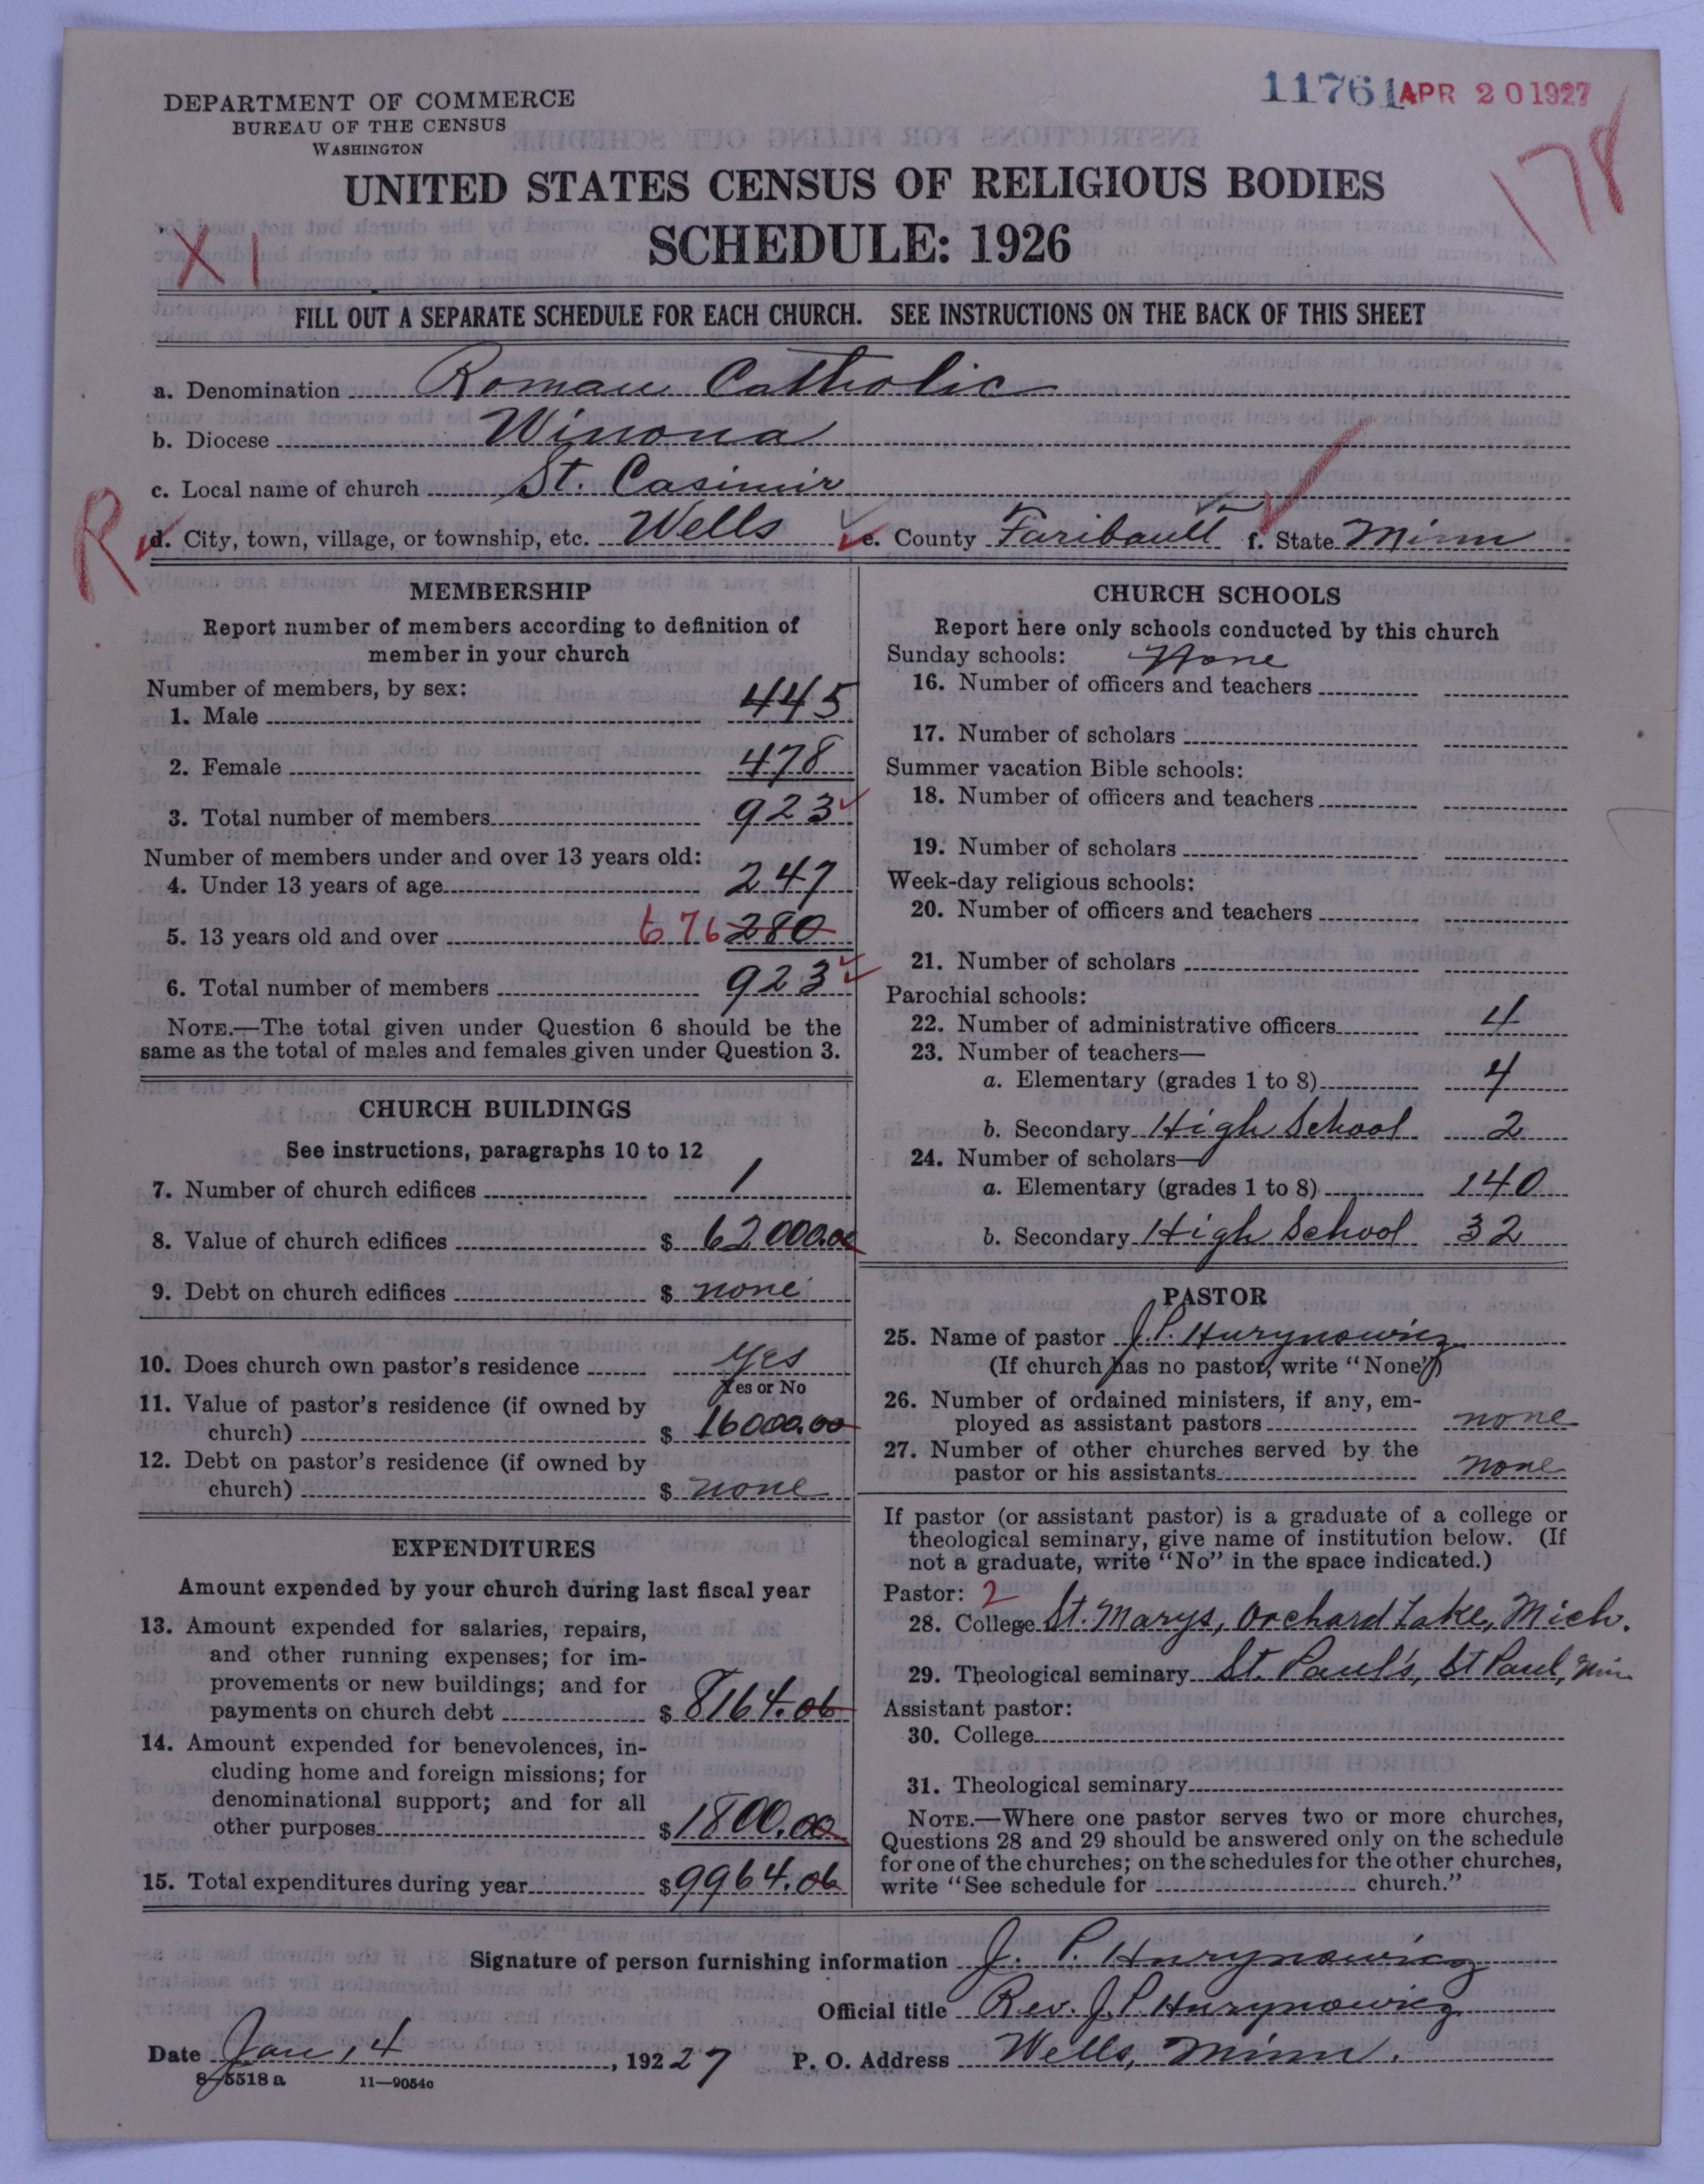 11761 APR 20 1927
DEPARTMENT OF COMMERCE
BUREAU OF THE CENSUS
WASHINGTON
178
UNITED STATES CENSUS OF RELIGIOUS BODIES
X1
SCHEDULE: 1926
FILL OUT A SEPARATE SCHEDULE FOR EACH CHURCH. SEE INSTRUCTIONS ON THE BACK OF THIS SHEET
a. Denomination Roman Catholic
b. Diocese Winona
c. Local name of church St. Casimir
R
d. City, town, village, or township, etc. Wells e. County Faribault f. State Minn
MEMBERSHIP
Report number of members according to definition of
member in your church
Number of members, by sex:
1. Male 445
2. Female 478
3. Total number of members 923
Number of members under and over 13 years old:
4. Under 13 years of age 247
5. 13 years old and over 676 280
6. Total number of members 923
NOTE.—The total given under Question 6 should be the
same as the total of males and females given under Question 3.
CHURCH BUILDINGS
See instructions, paragraphs 10 to 12
7. Number of church edifices 1
8. Value of church edifices $ 62000.00
9. Debt on church edifices $ none
10. Does church own pastor's residence Yes
Yes or No
11. Value of pastor's residence (if owned by
church) $ 16000.00
12. Debt on pastor's residence (if owned by
church) $ none
EXPENDITURES
Amount expended by your church during last fiscal year
13. Amount expended for salaries, repairs,
and other running expenses; for im-
provements or new buildings; and for
payments on church debt $ 8164.06
14. Amount expended for benevolences, in-
cluding home and foreign missions; for
denominational support; and for all
other purposes $ 1800.00
15. Total expenditures during year $ 9964.06
CHURCH SCHOOLS
Report here only schools conducted by this church
Sunday schools: None
16. Number of officers and teachers
17. Number of scholars
Summer vacation Bible schools:
18. Number of officers and teachers
19. Number of scholars
Week-day religious schools:
20. Number of officers and teachers
21. Number of scholars
Parochial schools:
22. Number of administrative officers 4
23. Number of teachers—
a. Elementary (grades 1 to 8) 4
b. Secondary High School 2
24. Number of scholars—
a. Elementary (grades 1 to 8) 140
b. Secondary High School 32
PASTOR
25. Name of pastor J. P. Hurynowicz
(If church has no pastor, write "None")
26. Number of ordained ministers, if any, em-
ployed as assistant pastors none
27. Number of other churches served by the
pastor or his assistants none
If pastor (or assistant pastor) is a graduate of a college or
theological seminary, give name of institution below. (If
not a graduate, write "No" in the space indicated.)
Pastor: 2
28. College St. Marys, Orchard Lake, Mich.
29. Theological seminary St. Paul's, St Paul, Min
Assistant pastor:
30. College
31. Theological seminary
NOTE.—Where one pastor serves two or more churches,
Questions 28 and 29 should be answered only on the schedule
for one of the churches; on the schedules for the other churches,
write "See schedule for church."
Signature of person furnishing information J. P. Hurynowicz
Official title Rev. J. P. Hurynowicz
Date Jan 14, 192 27 P. O. Address Wells, Minn.
8-5518 a 11—9054a